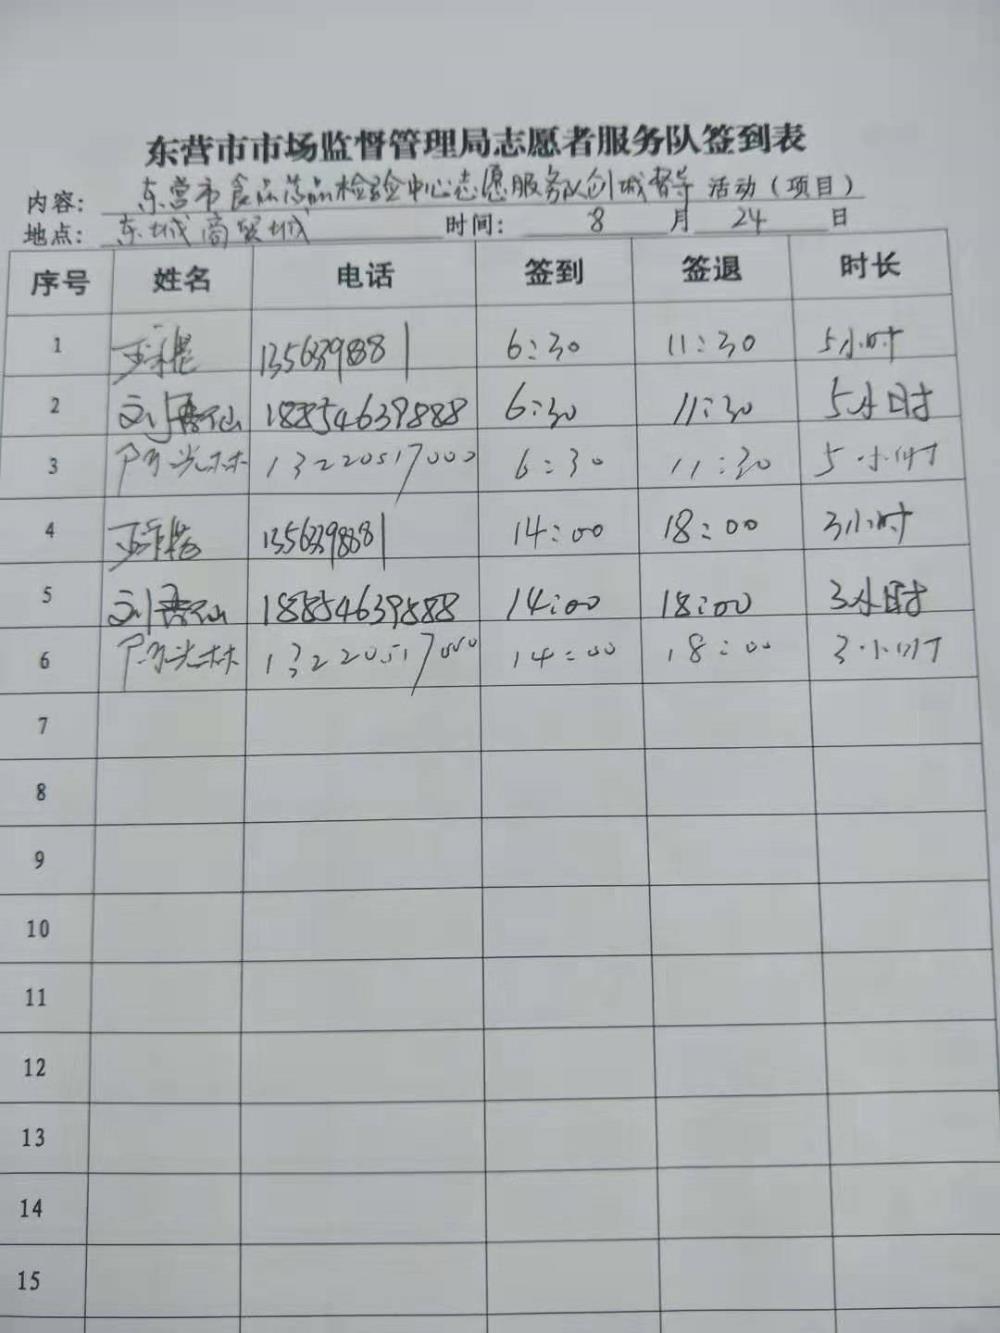 东营市市场监督管理局志愿者服务队签到表
内容： 东营市食品药品检验中心志愿服务队创城督导 活动（项目）
地点： 东城商贸城 时间： 8 月 24 日
序号 姓名 电话 签到 签退 时长
1 6:30 11:30 5小时
2 18854639888 6:30 11:30 5小时
3 13220517000 6:30 11:30 5小时
4 14:00 18:00 3小时
5 18854639888 14:00 18:00 3小时
6 13220517000 14:00 18:00 3小时
7
8
9
10
11
12
13
14
15